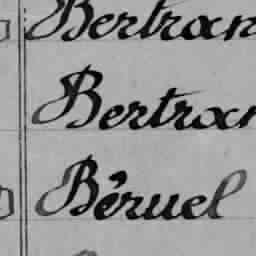 Bertran
Bertran
Béruel